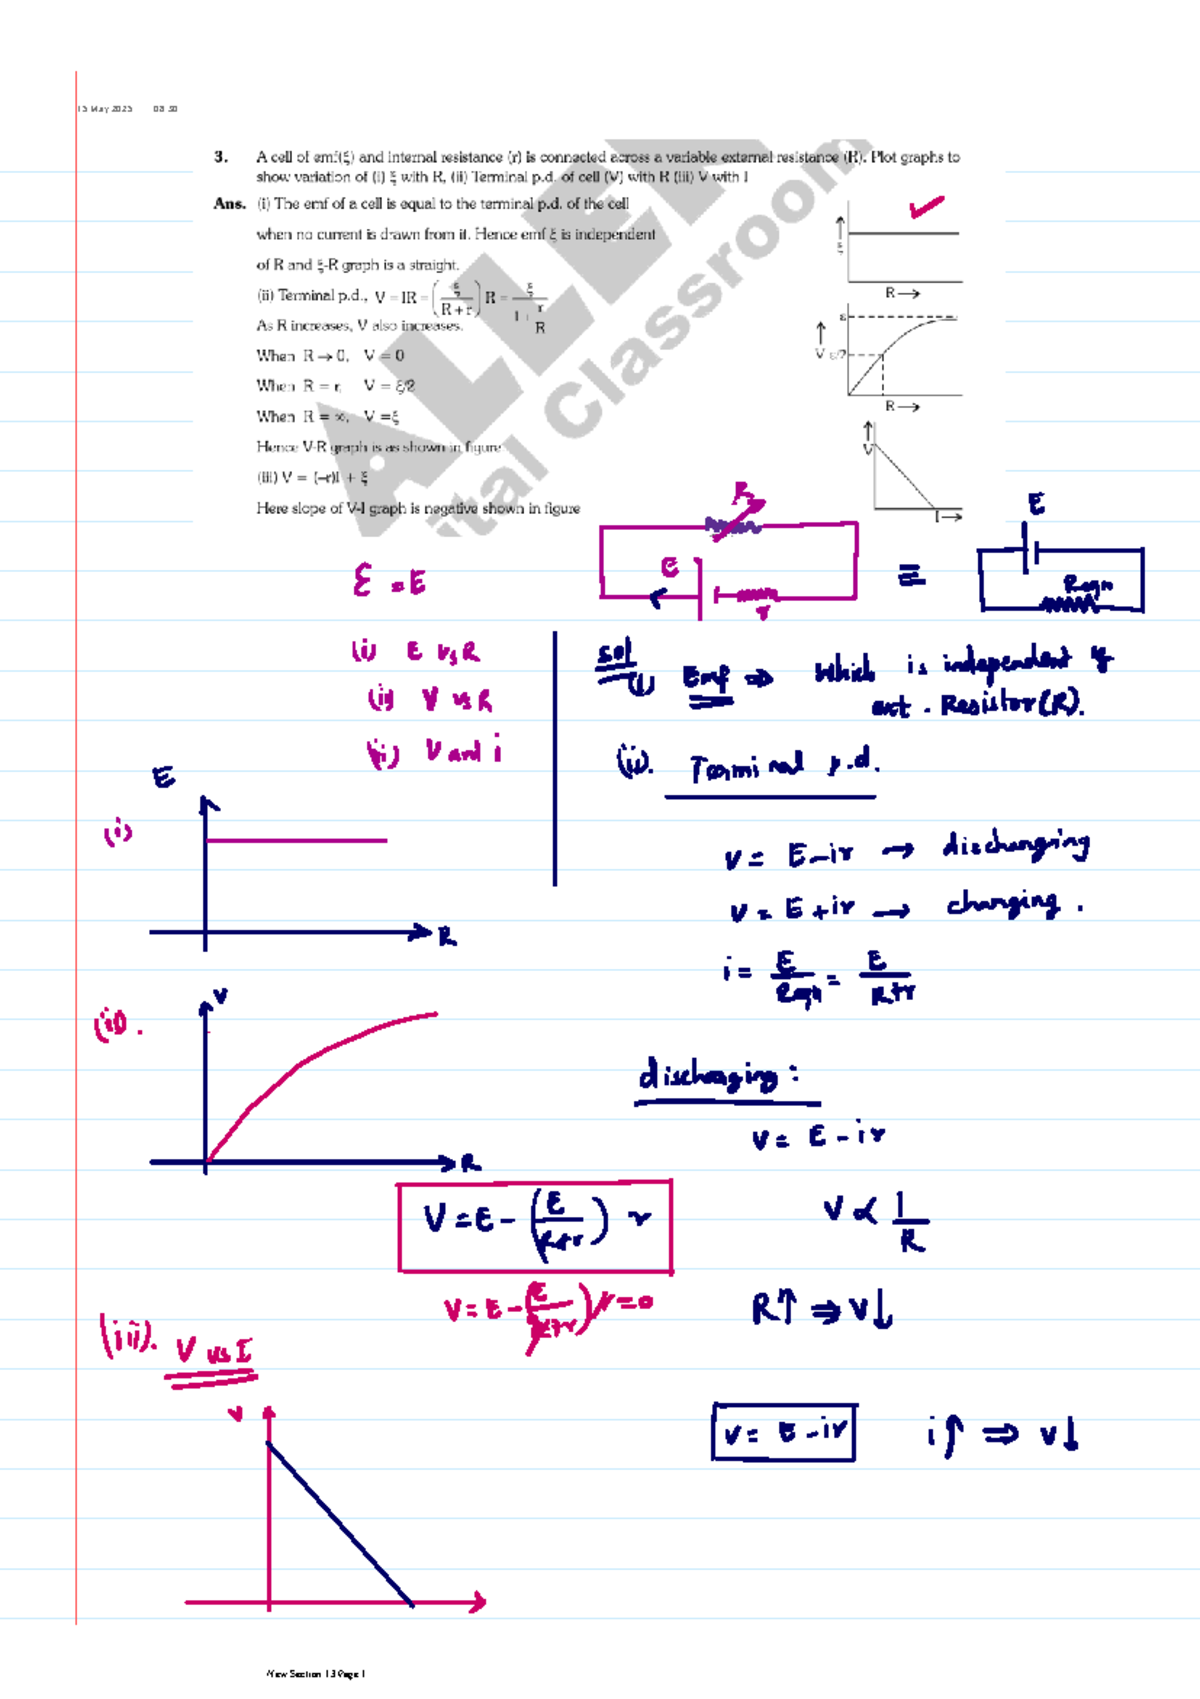 13 May 2023 08:30
3. A cell of emf(ξ) and internal resistance (r) is connected across a variable external resistance (R). Plot graphs to
show variation of (i) ξ with R, (ii) Terminal p.d. of cell (V) with R (iii) V with I
Ans. (i) The emf of a cell is equal to the terminal p.d. of the cell
when no current is drawn from it. Hence emf ξ is independent
of R and ξ-R graph is a straight.
(ii) Terminal p.d., V = IR = (ξ/(R + r)) R = ξ/(1 + r/R)
As R increases, V also increases.
When R → 0, V = 0
When R = r, V = ξ/2
When R = ∞, V = ξ
Hence V-R graph is as shown in figure
(iii) V = (–r)I + ξ
Here slope of V-I graph is negative shown in figure
ξ
R →
ε
V ε/2
R →
V
I →
ALLEN
ital Classroom
R
E
r
≡
E
Reqn
ℰ = E
(i) E vs R
(ii) V vs R
V and i
sol
(i) Emf ⇒ Which is independent of
ext. Resistor(R).
(ii). Terminal p.d.
V = E - ir → discharging
V = E + ir → charging.
i = E/Reqn = E/(R+r)
(i)
E
R
(ii).
V
R
discharging:
V = E - ir
V = E - (E/(R+r)) r
V ∝ 1/R
V = E - (E/(R+r)) r = 0
R↑ ⇒ V↓
(iii). V vs I
V
V = E - ir
i↑ ⇒ V↓
New Section 13 Page 1